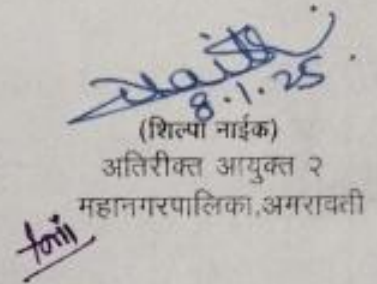 8.1.25
(शिल्पा नाईक)
अतिरीक्त आयुक्त २
महानगरपालिका,अमरावती